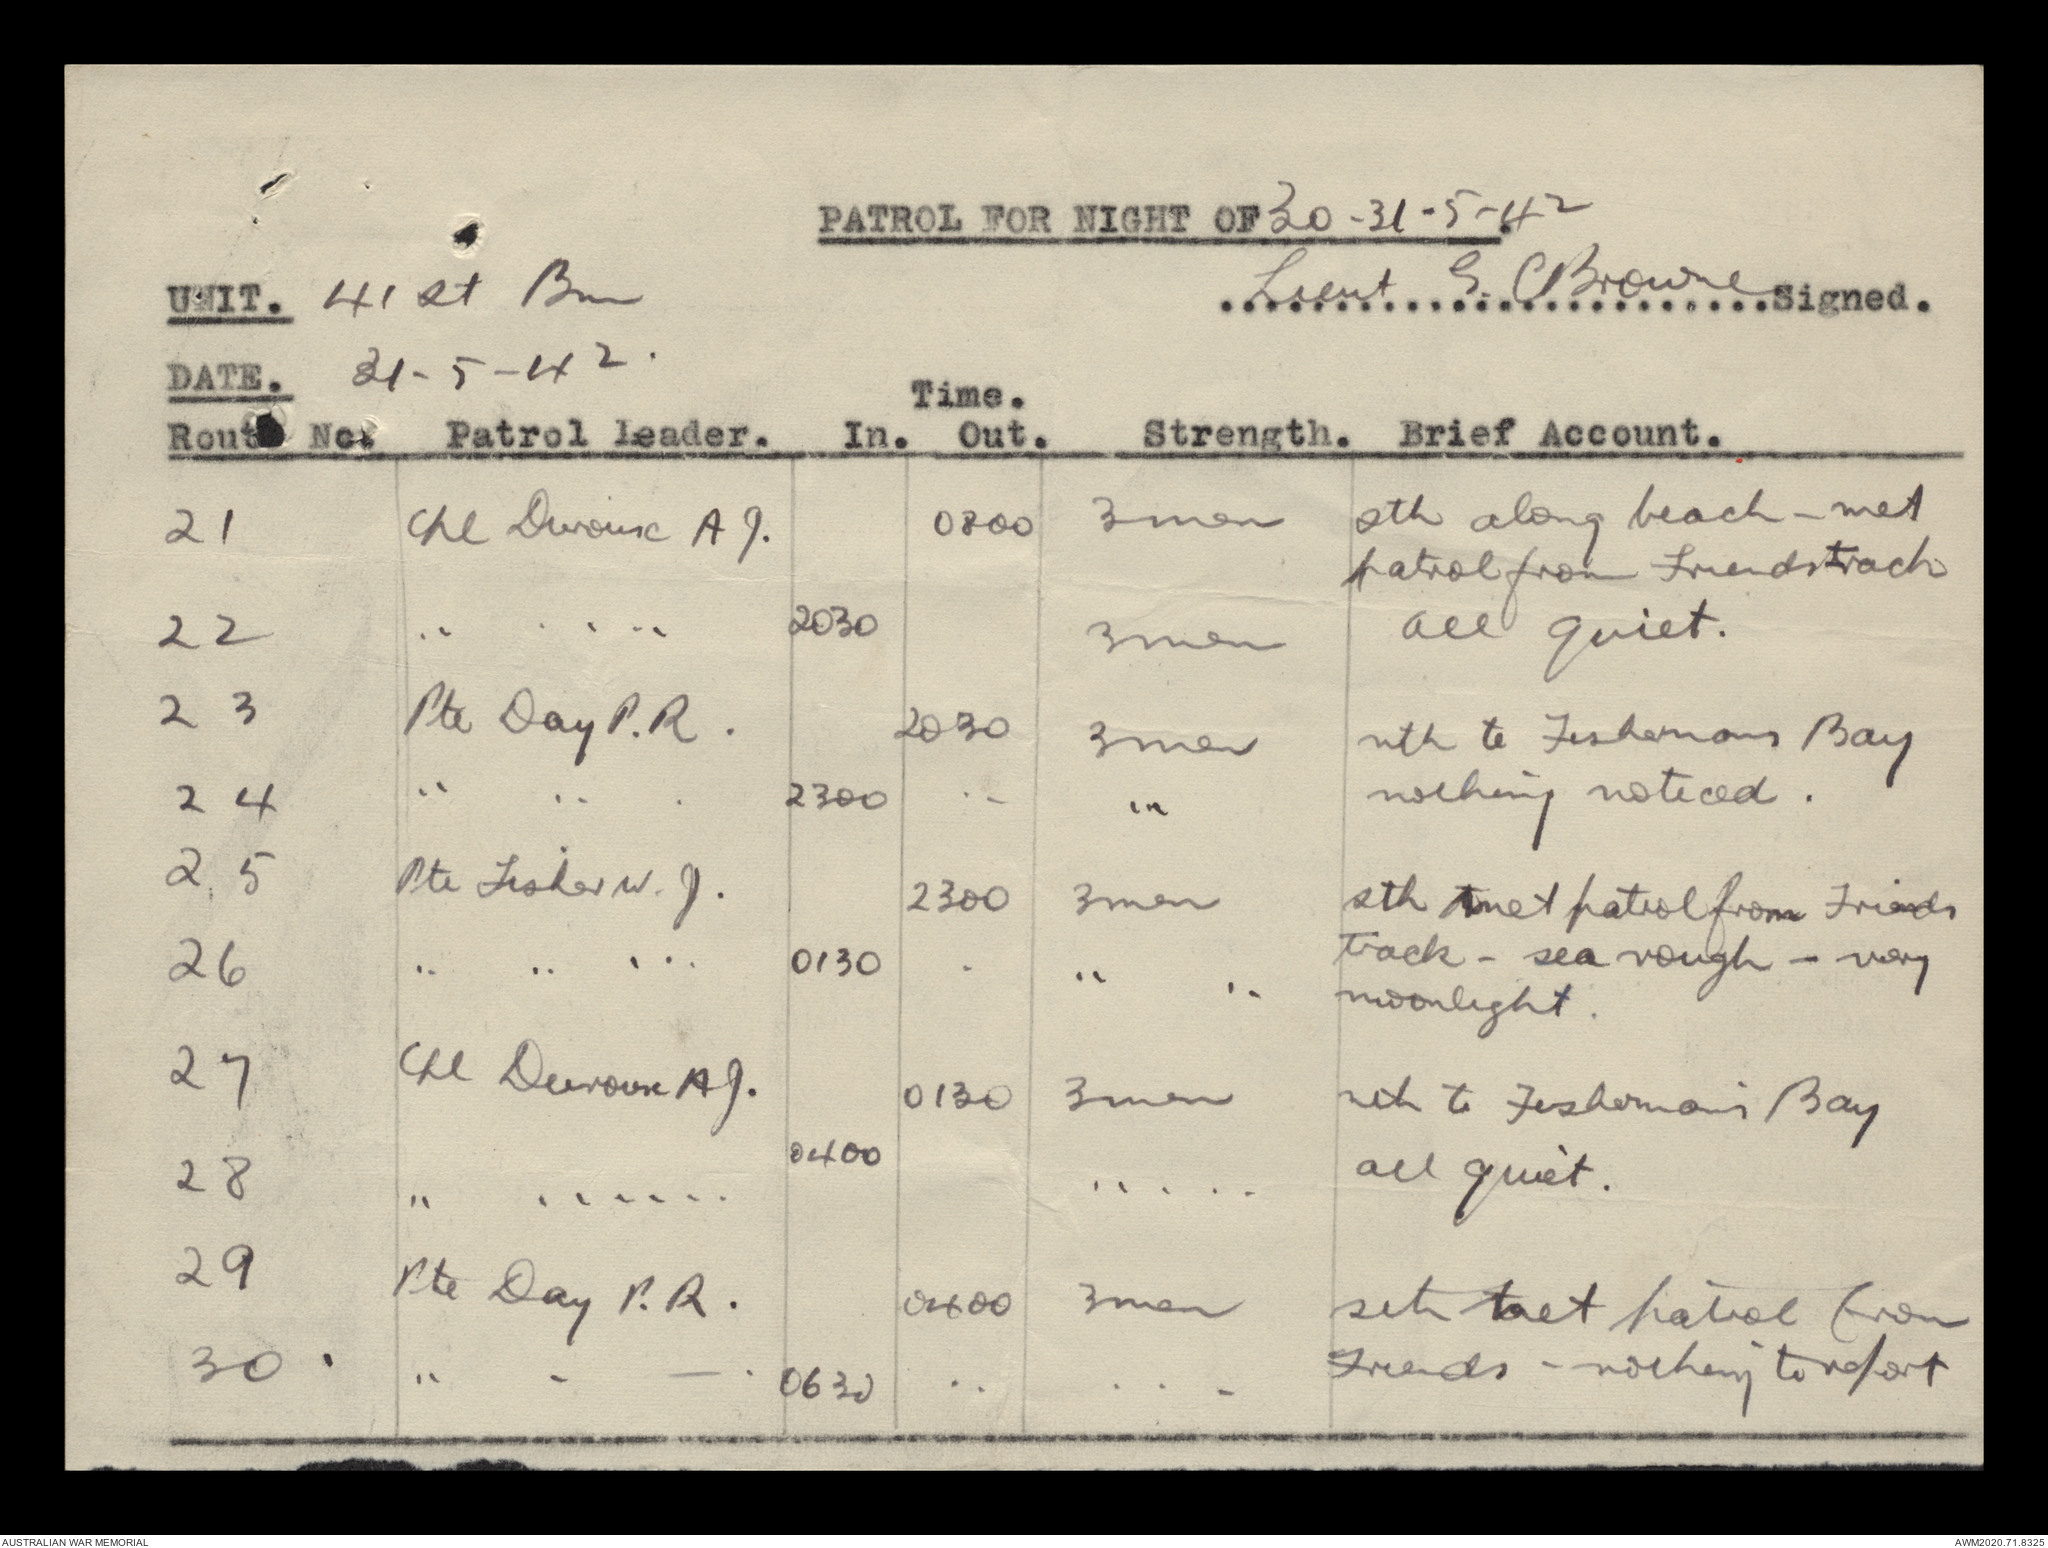 PATROL FOR NIGHT OF 30-31-5-42.
UNIT. 41st Bn Lieut G. C Browne Signed.
DATE. 31-5-42.
Time.
Route No. Patrol Leader. In. Out. Strength. Brief Account.
21 Cpl Duroux A J. 0800 3 men sth along beach - met
patrol from Friends track
22 " " " " 2030 3 men all quiet.
23 Pte Day P. R. 2030 3 men nth to Fishermans Bay
24 " " " 2300 " " nothing noticed.
25 Pte Fisher W. J. 2300 3 men sth met patrol from Friends
26 " " " " 0130 " " " track - sea rough - very
moonlight.
27 Cpl Duroux A J. 0130 3 men nth to Fishermans Bay
28 " " " " 0400 " " all quiet.
29 Pte Day P. R. 0400 3 men sth met patrol from
30. " " " 0630 " " " Friends - nothing to report
AUSTRALIAN WAR MEMORIAL AWM2020.71.8325